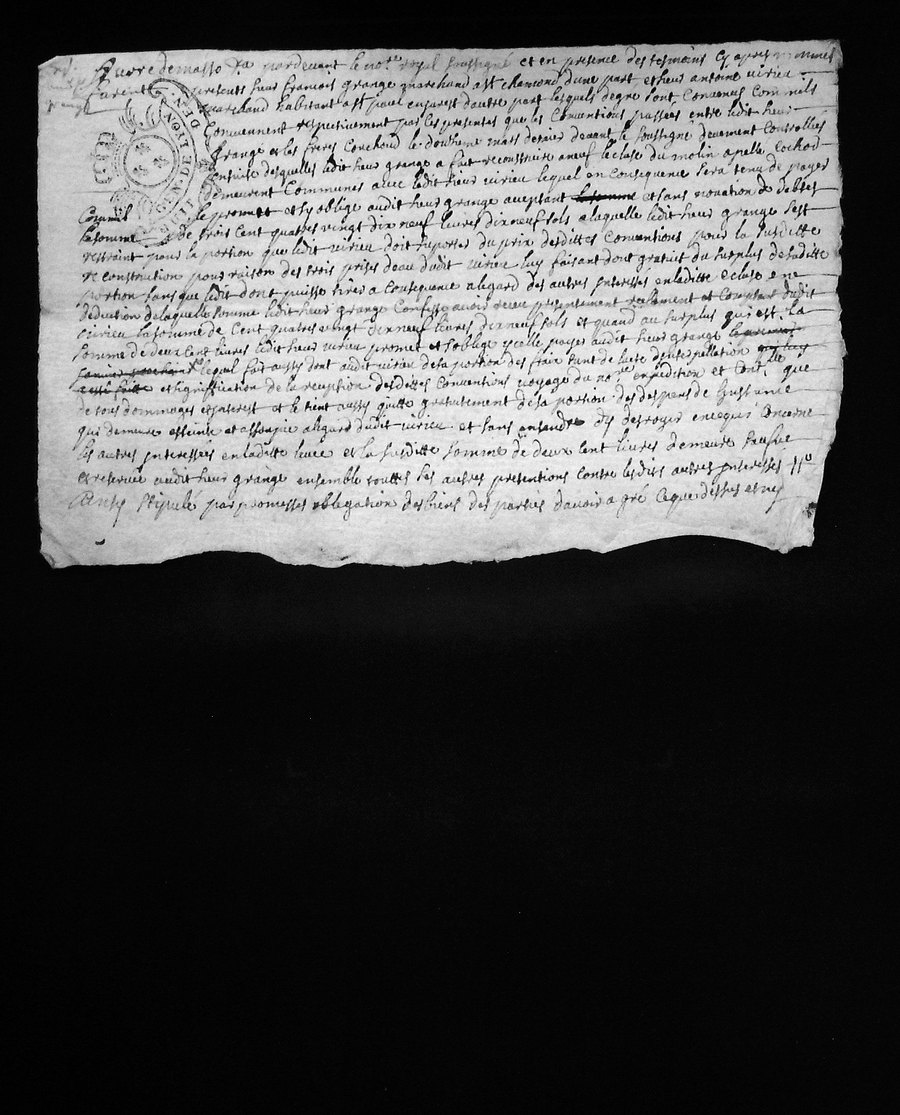 pardevant le no.re royal soussigné et en presence des tesmoins cy apres nommés
furent presents sieur françois grange marchand a st chamond d'une part et sieur antoine virieu
marchand habitant a st paul en jarest d'autre part lesquels de gre sont convenus comm'ils
conviennent respectivement par les presentes que les conventions passées entre ledit sieur
grange et les freres couchoud le douzieme mars dernier devant le soussigné deuement controllées
ensuite desquelles ledit sieur grange a fait reconstruire a neuf lecluse du molin apellé
demeurent communes avec ledit sieur virieu lequel en consequence sera tenu de payer
comm'il le promet et s'y oblige audit sieur grange acceptant et sans novation de debtes
la somme de trois cent quatres vingt dix neuf livres dix neuf sols a laquelle ledit sieur grange s'est
restraint pour la portion que ledit virieu doit suporter du prix desdittes conventions pour la susditte
reconstruction pour raison des trois prises d'eau dudit virieu luy faisant dont gratuit du surplus de laditte
portion sans que ledit dont puisse tirer a consequence a legard des autres interessés en laditte ecluse en
deduction de laquelle somme ledit sieur grange confesse avoir receu presentement réelement et comptant dudit
virieu la somme de cent quatres vingt dix neuf livres dix neuf sols et quand au surplus qui est la
somme de deux cent livres ledit sieur virieu promet et s'oblige ycelle payer audit sieur grange
lequel fait aussy dont audit virieu de sa portion des frais tant de lacte d'interpellation
et signiffication de la reception desdittes conventions voyage du no.re expedition et que
de tous dommages et interest et le tient aussy quitte gratuitement de sa portion des despans de l'instance
qui demeure esteinte et assoupie a legard dudit virieu et sans entendre d'y desroger en ce qui concerne
les autres interessés en laditte levée et la susditte somme de deux cent livres demeure sauve
et reservée audit sieur grange ensemble touttes ses autres pretentions contre lesdits autres interessés
ainsy stipulé par promesses obligation des biens des parties d'avoir a gré ce que dessus et
GEN. DE LYON